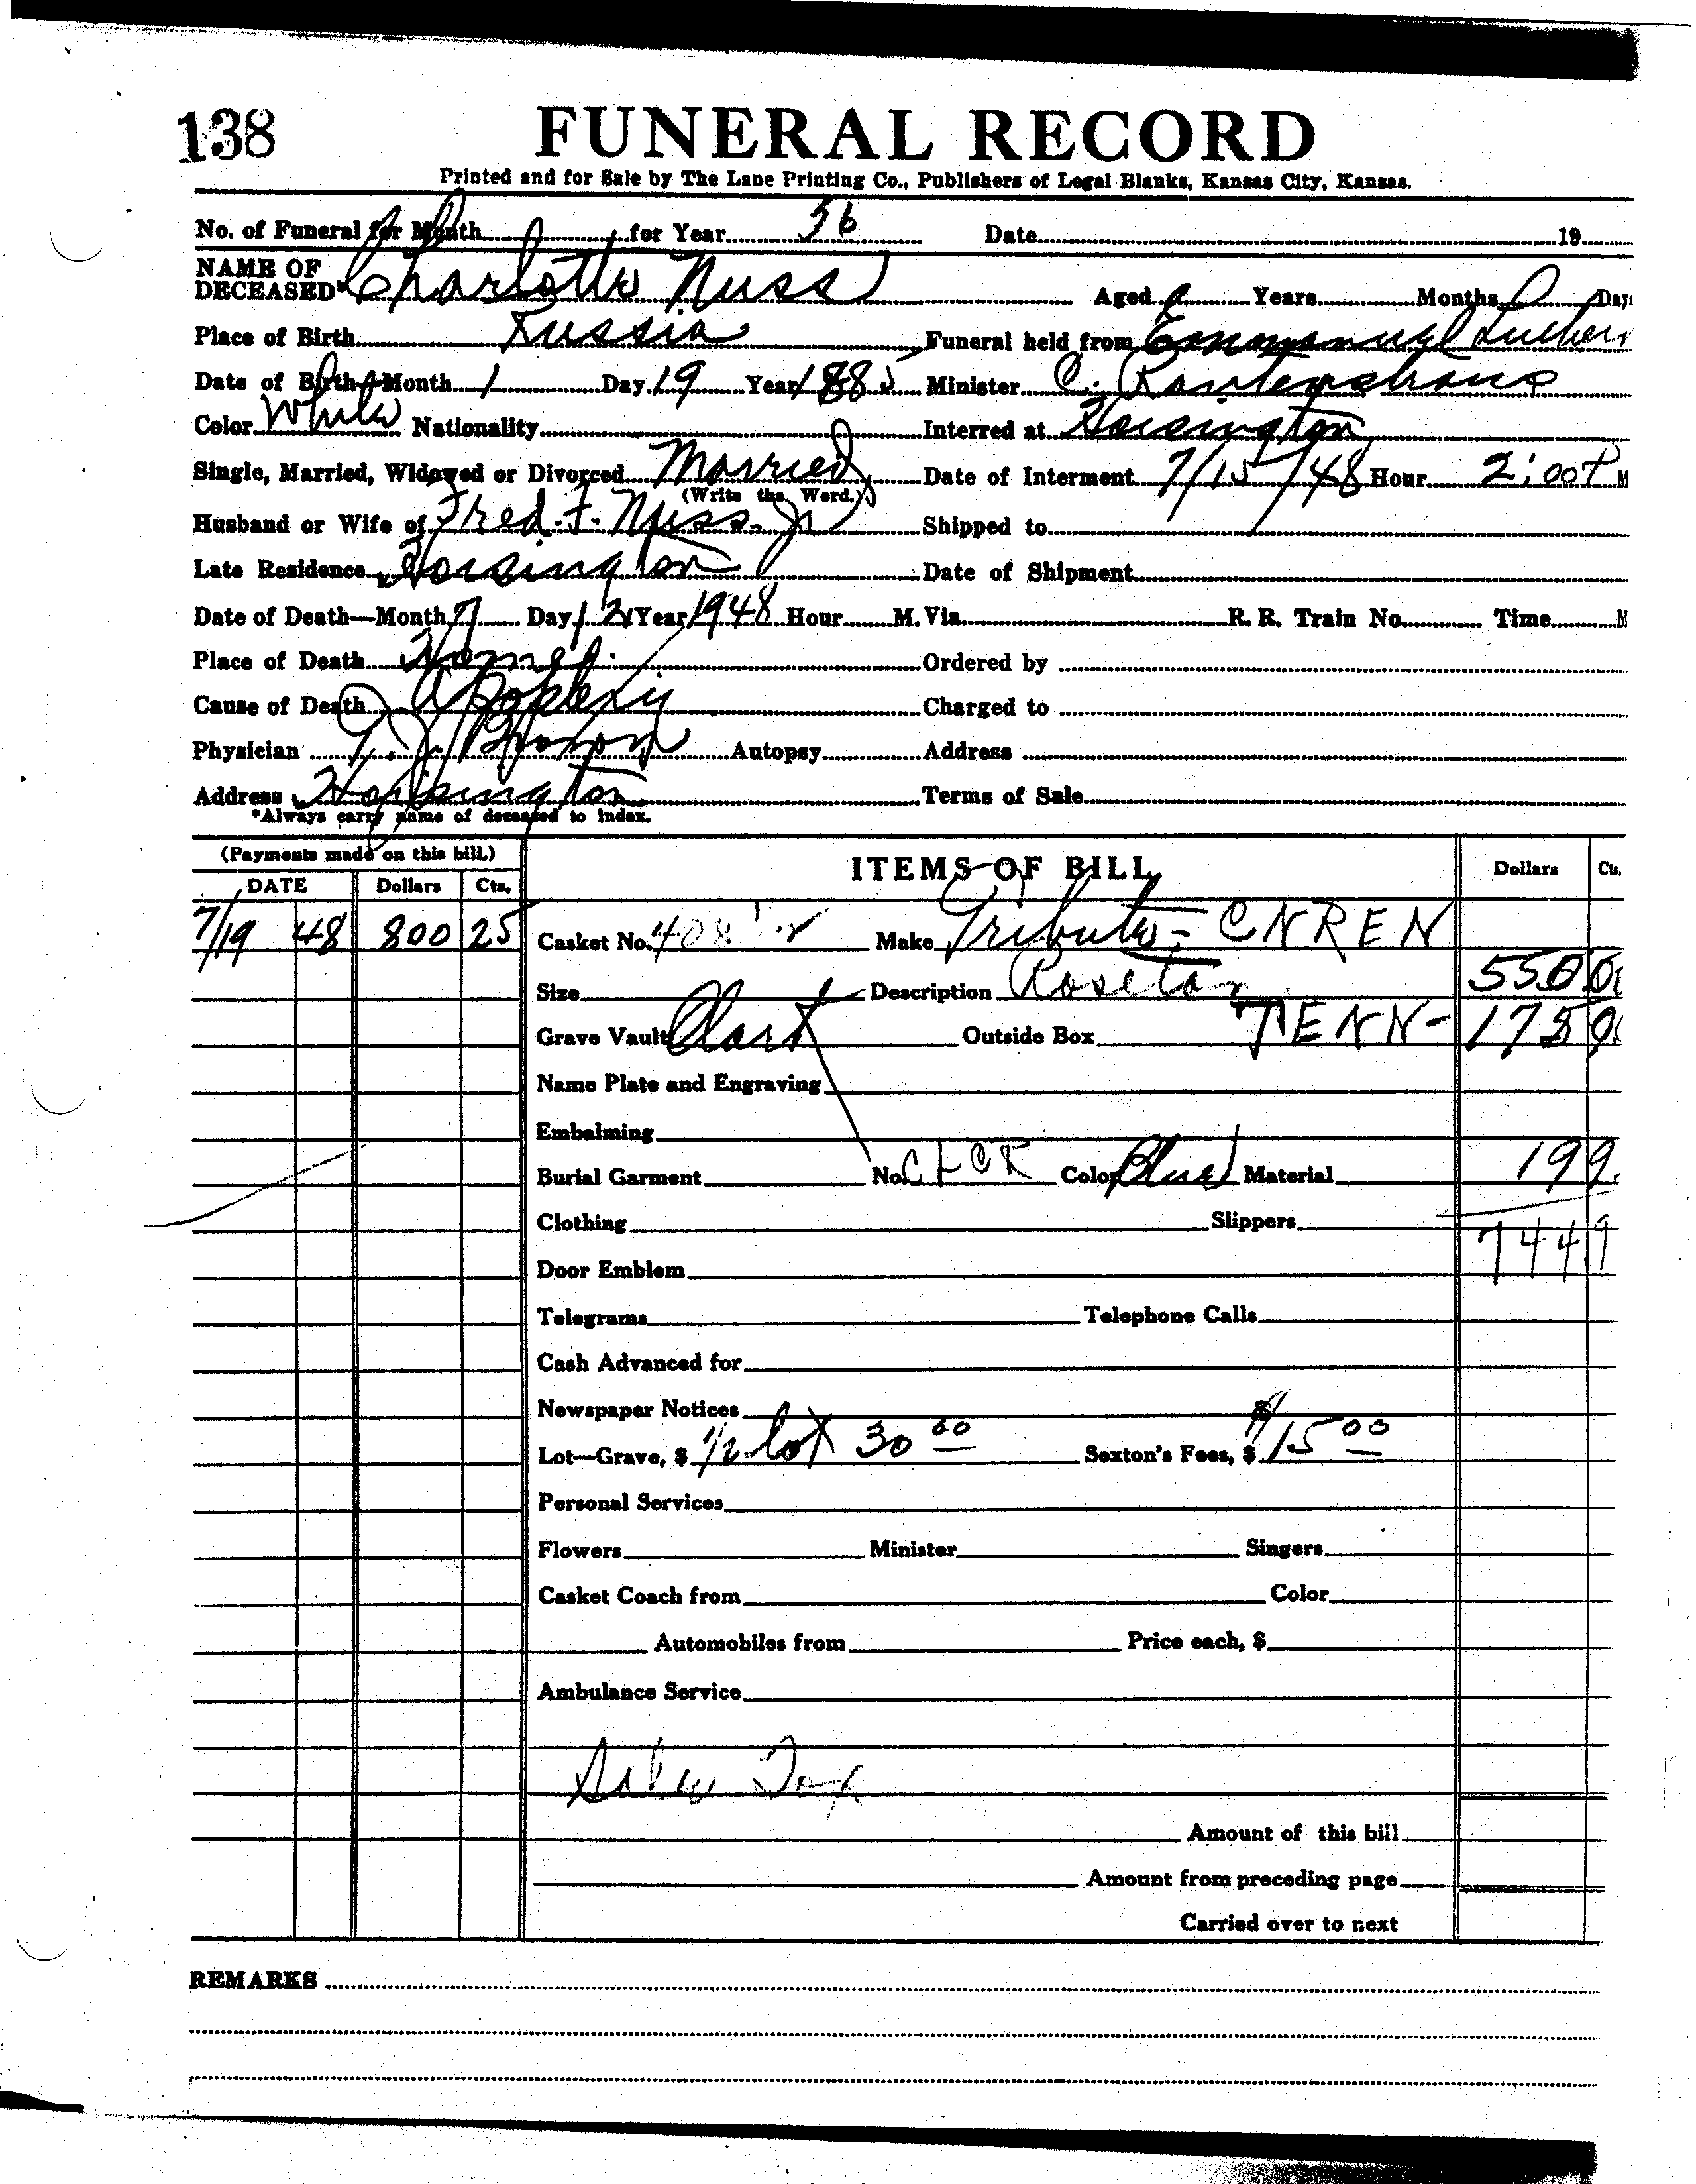 138
FUNERAL RECORD
Printed and for Sale by The Lane Printing Co., Publishers of Legal Blanks, Kansas City, Kansas.
No. of Funeral for Month for Year 36 Date 19
NAME OF DECEASED* Charlotte Nuss Aged Years Months Days
Place of Birth Russia Funeral held from Emmanuel Luther
Date of Birth—Month 1 Day 19 Year 1885 Minister C.
Color White Nationality Interred at Hoisington
Single, Married, Widowed or Divorced Married Date of Interment 7/15/48 Hour 2:00 P M
(Write the Word.)
Husband or Wife of Fred. F. Nuss Jr Shipped to
Late Residence Hoisington Date of Shipment
Date of Death—Month 7 Day 12 Year 1948 Hour M. Via R. R. Train No. Time M
Place of Death Home. Ordered by
Cause of Death Apoplexy Charged to
Physician Autopsy Address
Address Hoisington Terms of Sale
*Always carry name of deceased to index.
(Payments made on this bill.) ITEMS OF BILL Dollars Cts.
DATE Dollars Cts.
7/19 48 800 25 Casket No. 408 Make Tribute - CNREN
Size Description Roseton 550 00
Grave Vault Clark Outside Box TENN- 175 00
Name Plate and Engraving
Embalming
Burial Garment No. Color Blue Material 19 9
Clothing Slippers
744 9
Door Emblem
Telegrams Telephone Calls
Cash Advanced for
Newspaper Notices
Lot—Grave, $ 1/2 lot 30 00 Sexton's Fees, $ $15 00
Personal Services
Flowers Minister Singers
Casket Coach from Color
Automobiles from Price each, $
Ambulance Service
Sales Tax
Amount of this bill
Amount from preceding page
Carried over to next
REMARKS